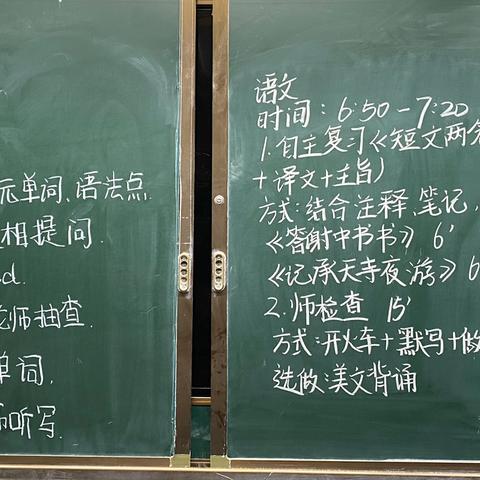 元单词、语法点
相提问.
d.
老师抽查.
单词,
听写.
语文
时间:6:50-7:20
1.自主复习《短文两
+译文+主旨)
方式:结合注释、笔记,
《答谢中书书》 6'
《记承天寺夜游》 6
2.师检查 15'
方式:开火车+默写+做
选做:美文背诵